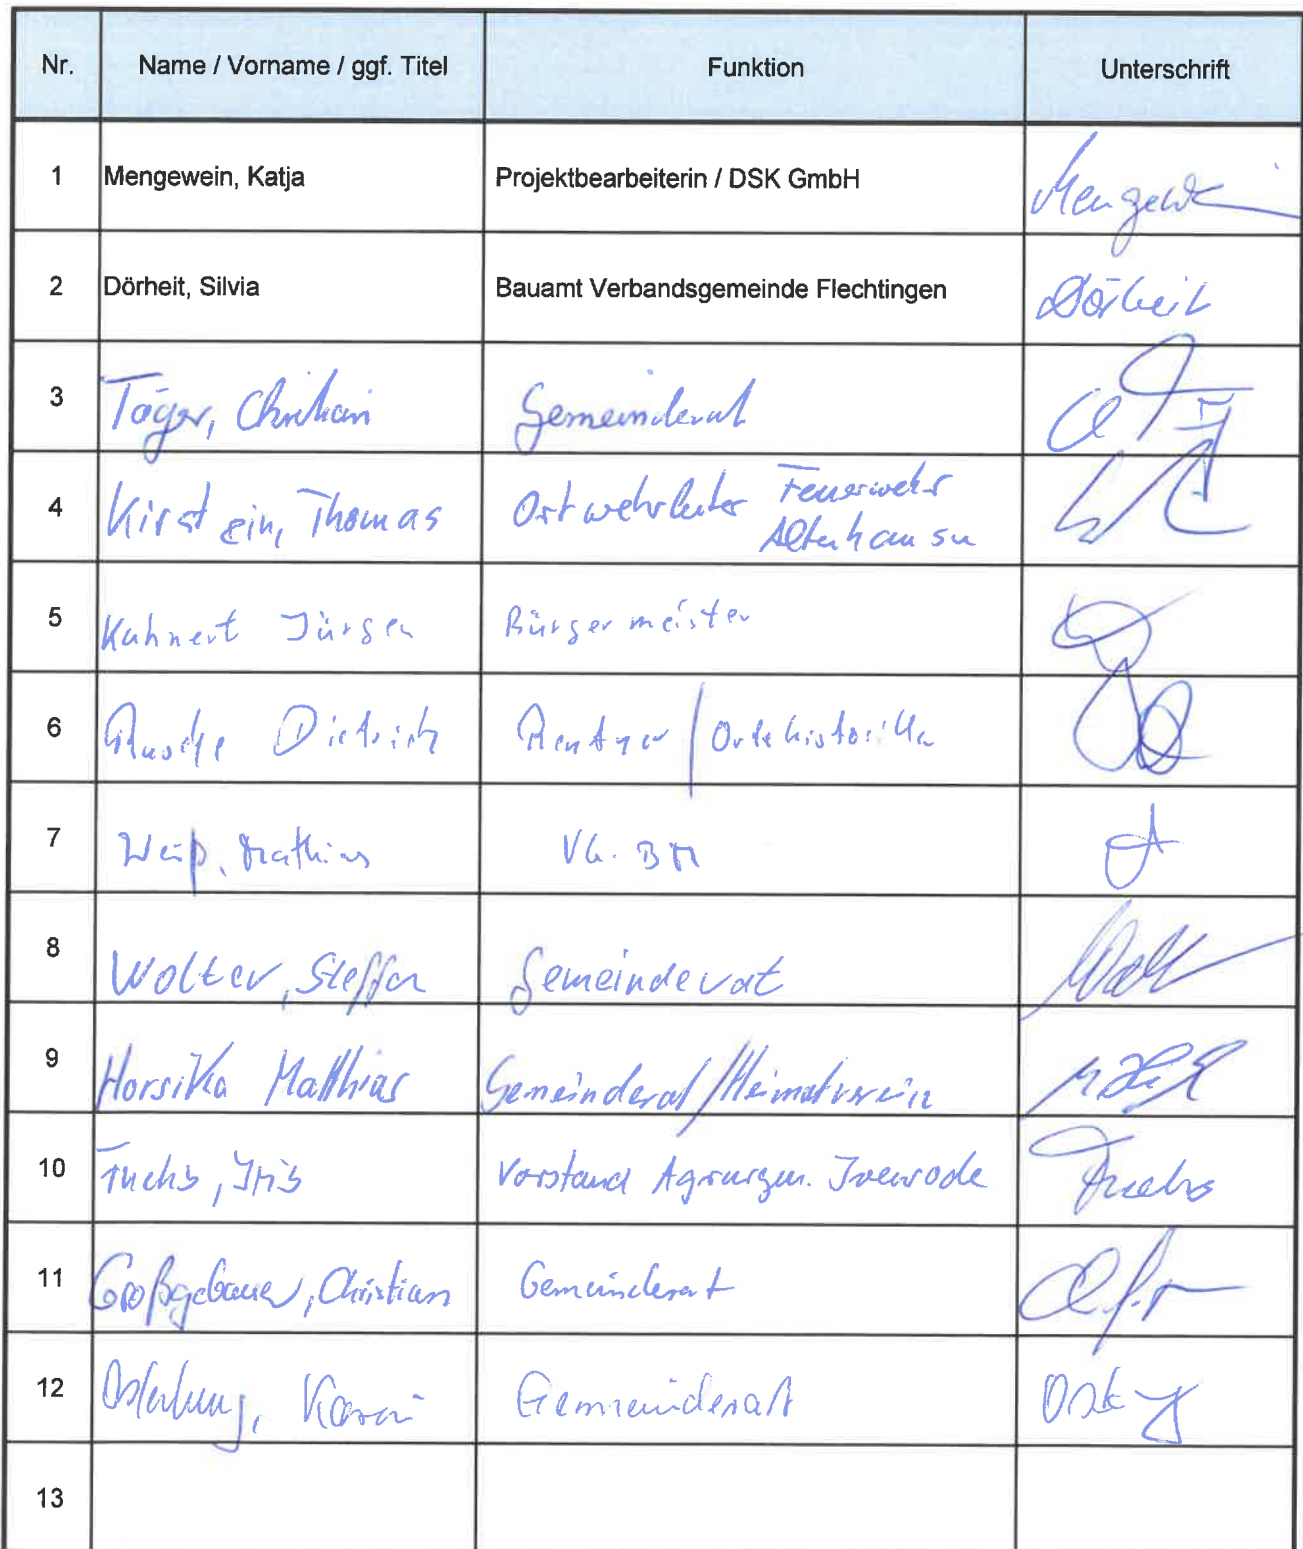 Nr. Name / Vorname / ggf. Titel Funktion Unterschrift
1 Mengewein, Katja Projektbearbeiterin / DSK GmbH Mengewein
2 Dörheit, Silvia Bauamt Verbandsgemeinde Flechtingen Dörheit
3 Täger, Christian Gemeinderat
4 Kirstein, Thomas Ortwehrleiter Feuerwehr
Altenhausen
5 Kahnert Jürgen Bürgermeister
6 Dietrich Rentner / Ortshistoriker
7 Weiß, Mathias Vb. BM
8 Wolter, Steffen Gemeinderat
9 Horsitka Matthias Gemeinderat / Heimatverein
10 Fuchs, Iris Vorstand Agrargen. Ivenrode Fuchs
11 Großgebauer, Christian Gemeinderat
12 Gemeinderat
13